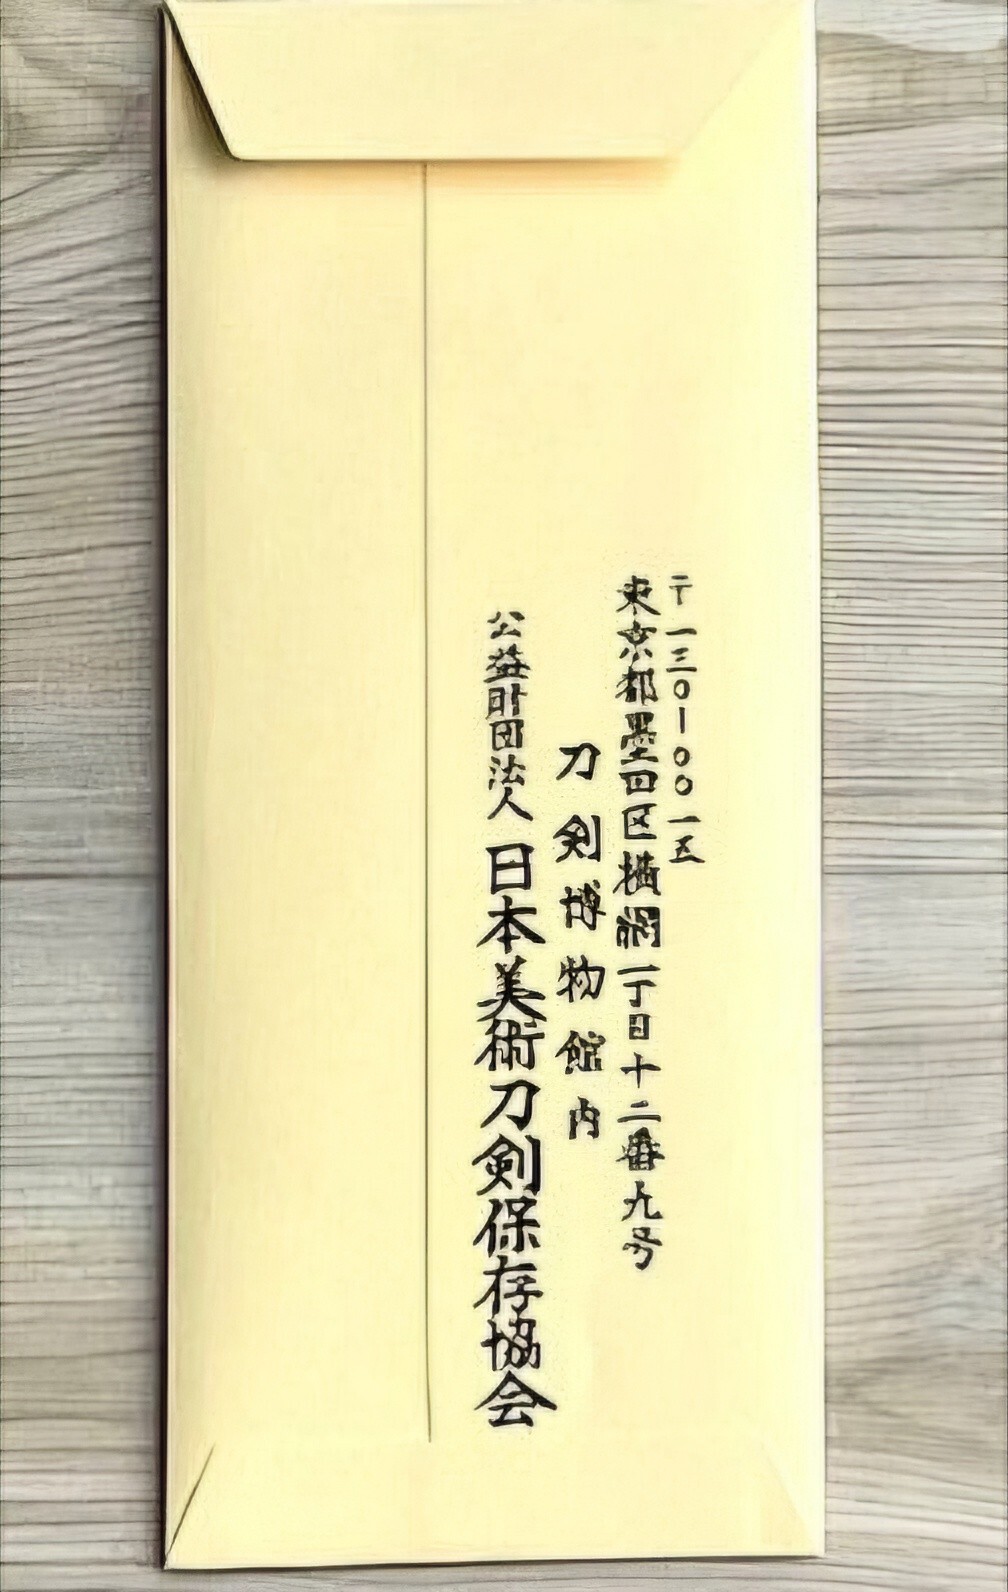 〒一三〇-〇〇一五
東京都墨田区横網一丁目十二番九号
刀剣博物館内
公益財団法人 日本美術刀剣保存協会